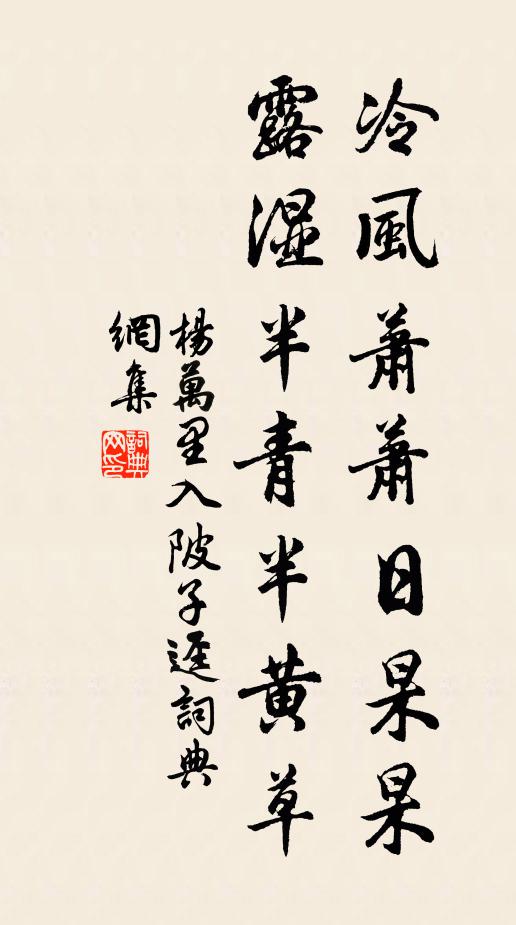 冷風蕭蕭日杲杲
露湿半青半黄草
楊萬里入陂子逕詞典
網集
詞典網印